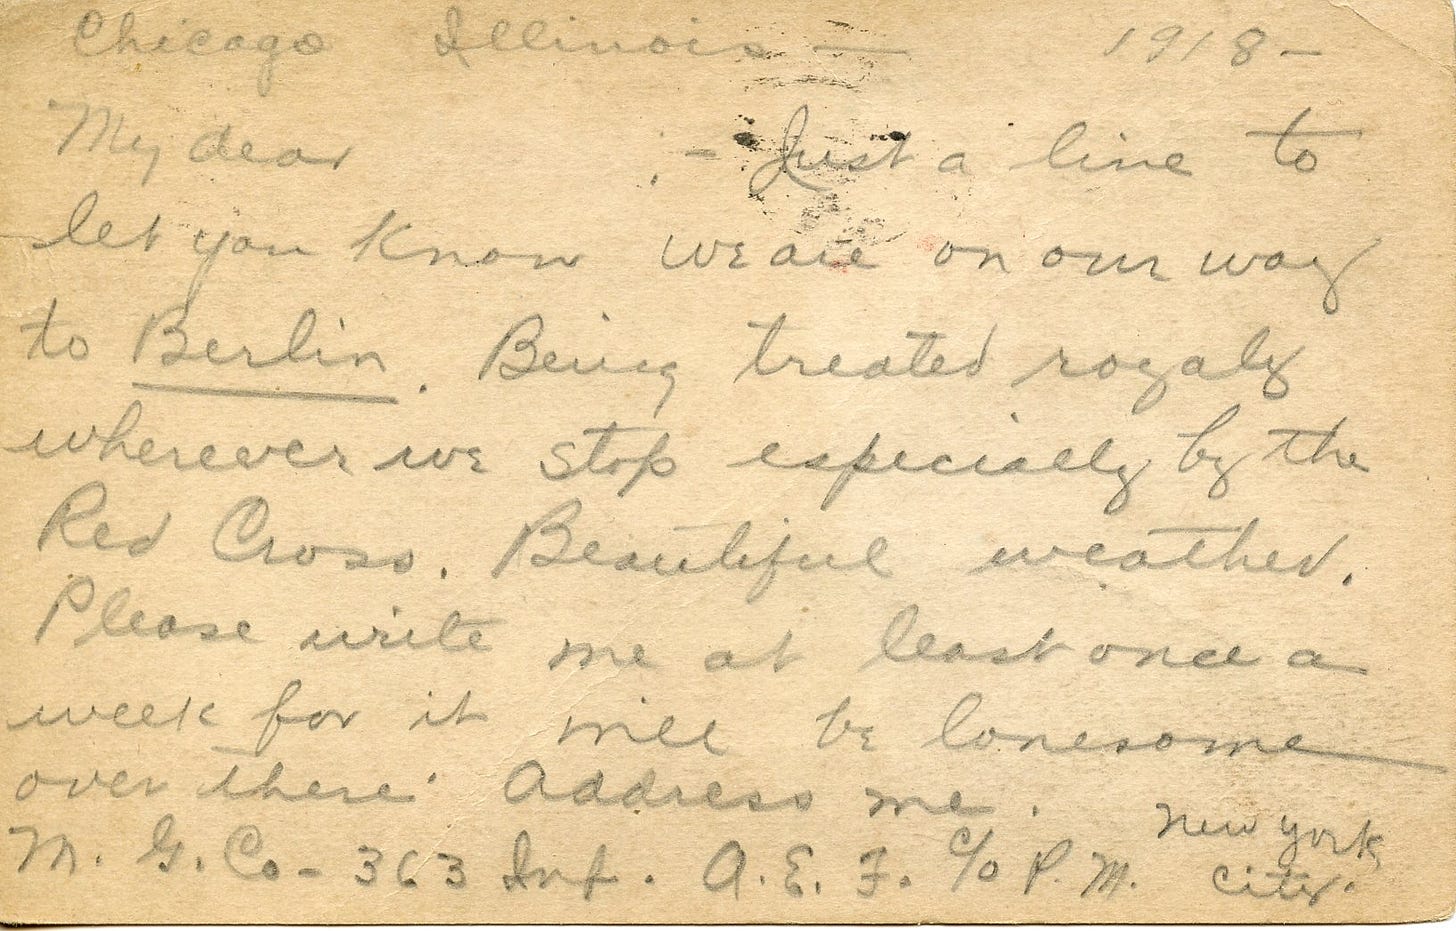 Chicago Illinois — 1918 –
My dear , - Just a line to
let you know we are on our way
to Berlin. Being treated royaly
wherever we stop especially by the
Red Cross. Beautiful weather.
Please write me at least once a
week for it will be lonesome
over there. Address me.
M. G. Co - 363 Inf. A. E. F. c/o P. M. New York
City.